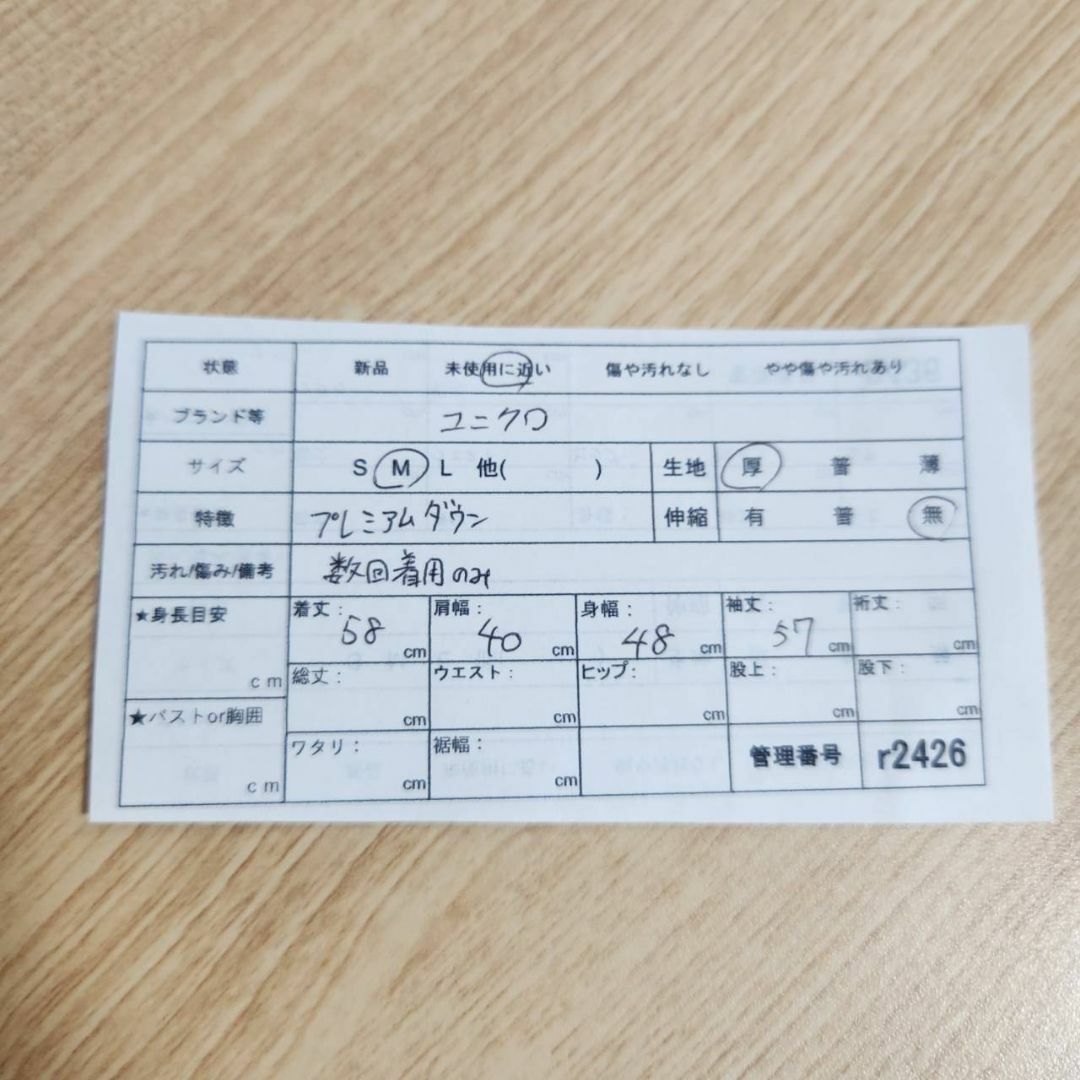 状態 新品 未使用に近い 傷や汚れなし やや傷や汚れあり
ブランド等 ユニクロ
サイズ S M L 他( ) 生地 厚 普 薄
特徴 プレミアムダウン 伸縮 有 普 無
汚れ/傷み/備考 数回着用のみ
★身長目安 cm 着丈: 58 cm 肩幅: 40 cm 身幅: 48 cm 袖丈: 57 cm 裄丈: cm
総丈: cm ウエスト: cm ヒップ: cm 股上: cm 股下: cm
★バストor胸囲 cm ワタリ: cm 裾幅: cm cm 管理番号 r2426